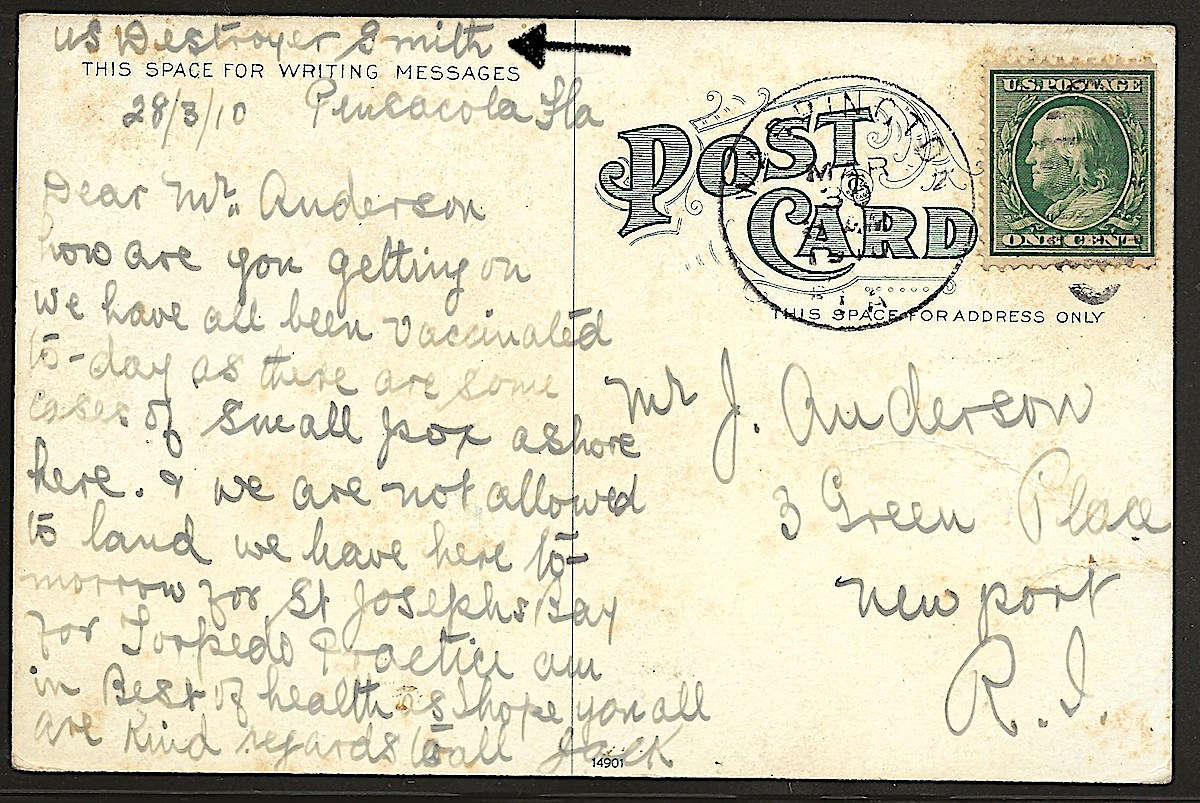 US Destroyer Smith
THIS SPACE FOR WRITING MESSAGES
28/3/10 Pensacola Fla
Dear Mr. Anderson
how are you getting on
we have all been vaccinated
to-day as there are some
cases of small pox ashore
here. & we are not allowed
to land we have here to-
morrow for St Josephs Bay
for Torpedo Practice am
in Best of health as I hope you all
are Kind regards to all Jack
POST
CARD
MAR
30
FLA
U.S. POSTAGE
ONE CENT
THIS SPACE FOR ADDRESS ONLY
Mr J. Anderson
3 Green Place
Newport
R.I.
14901